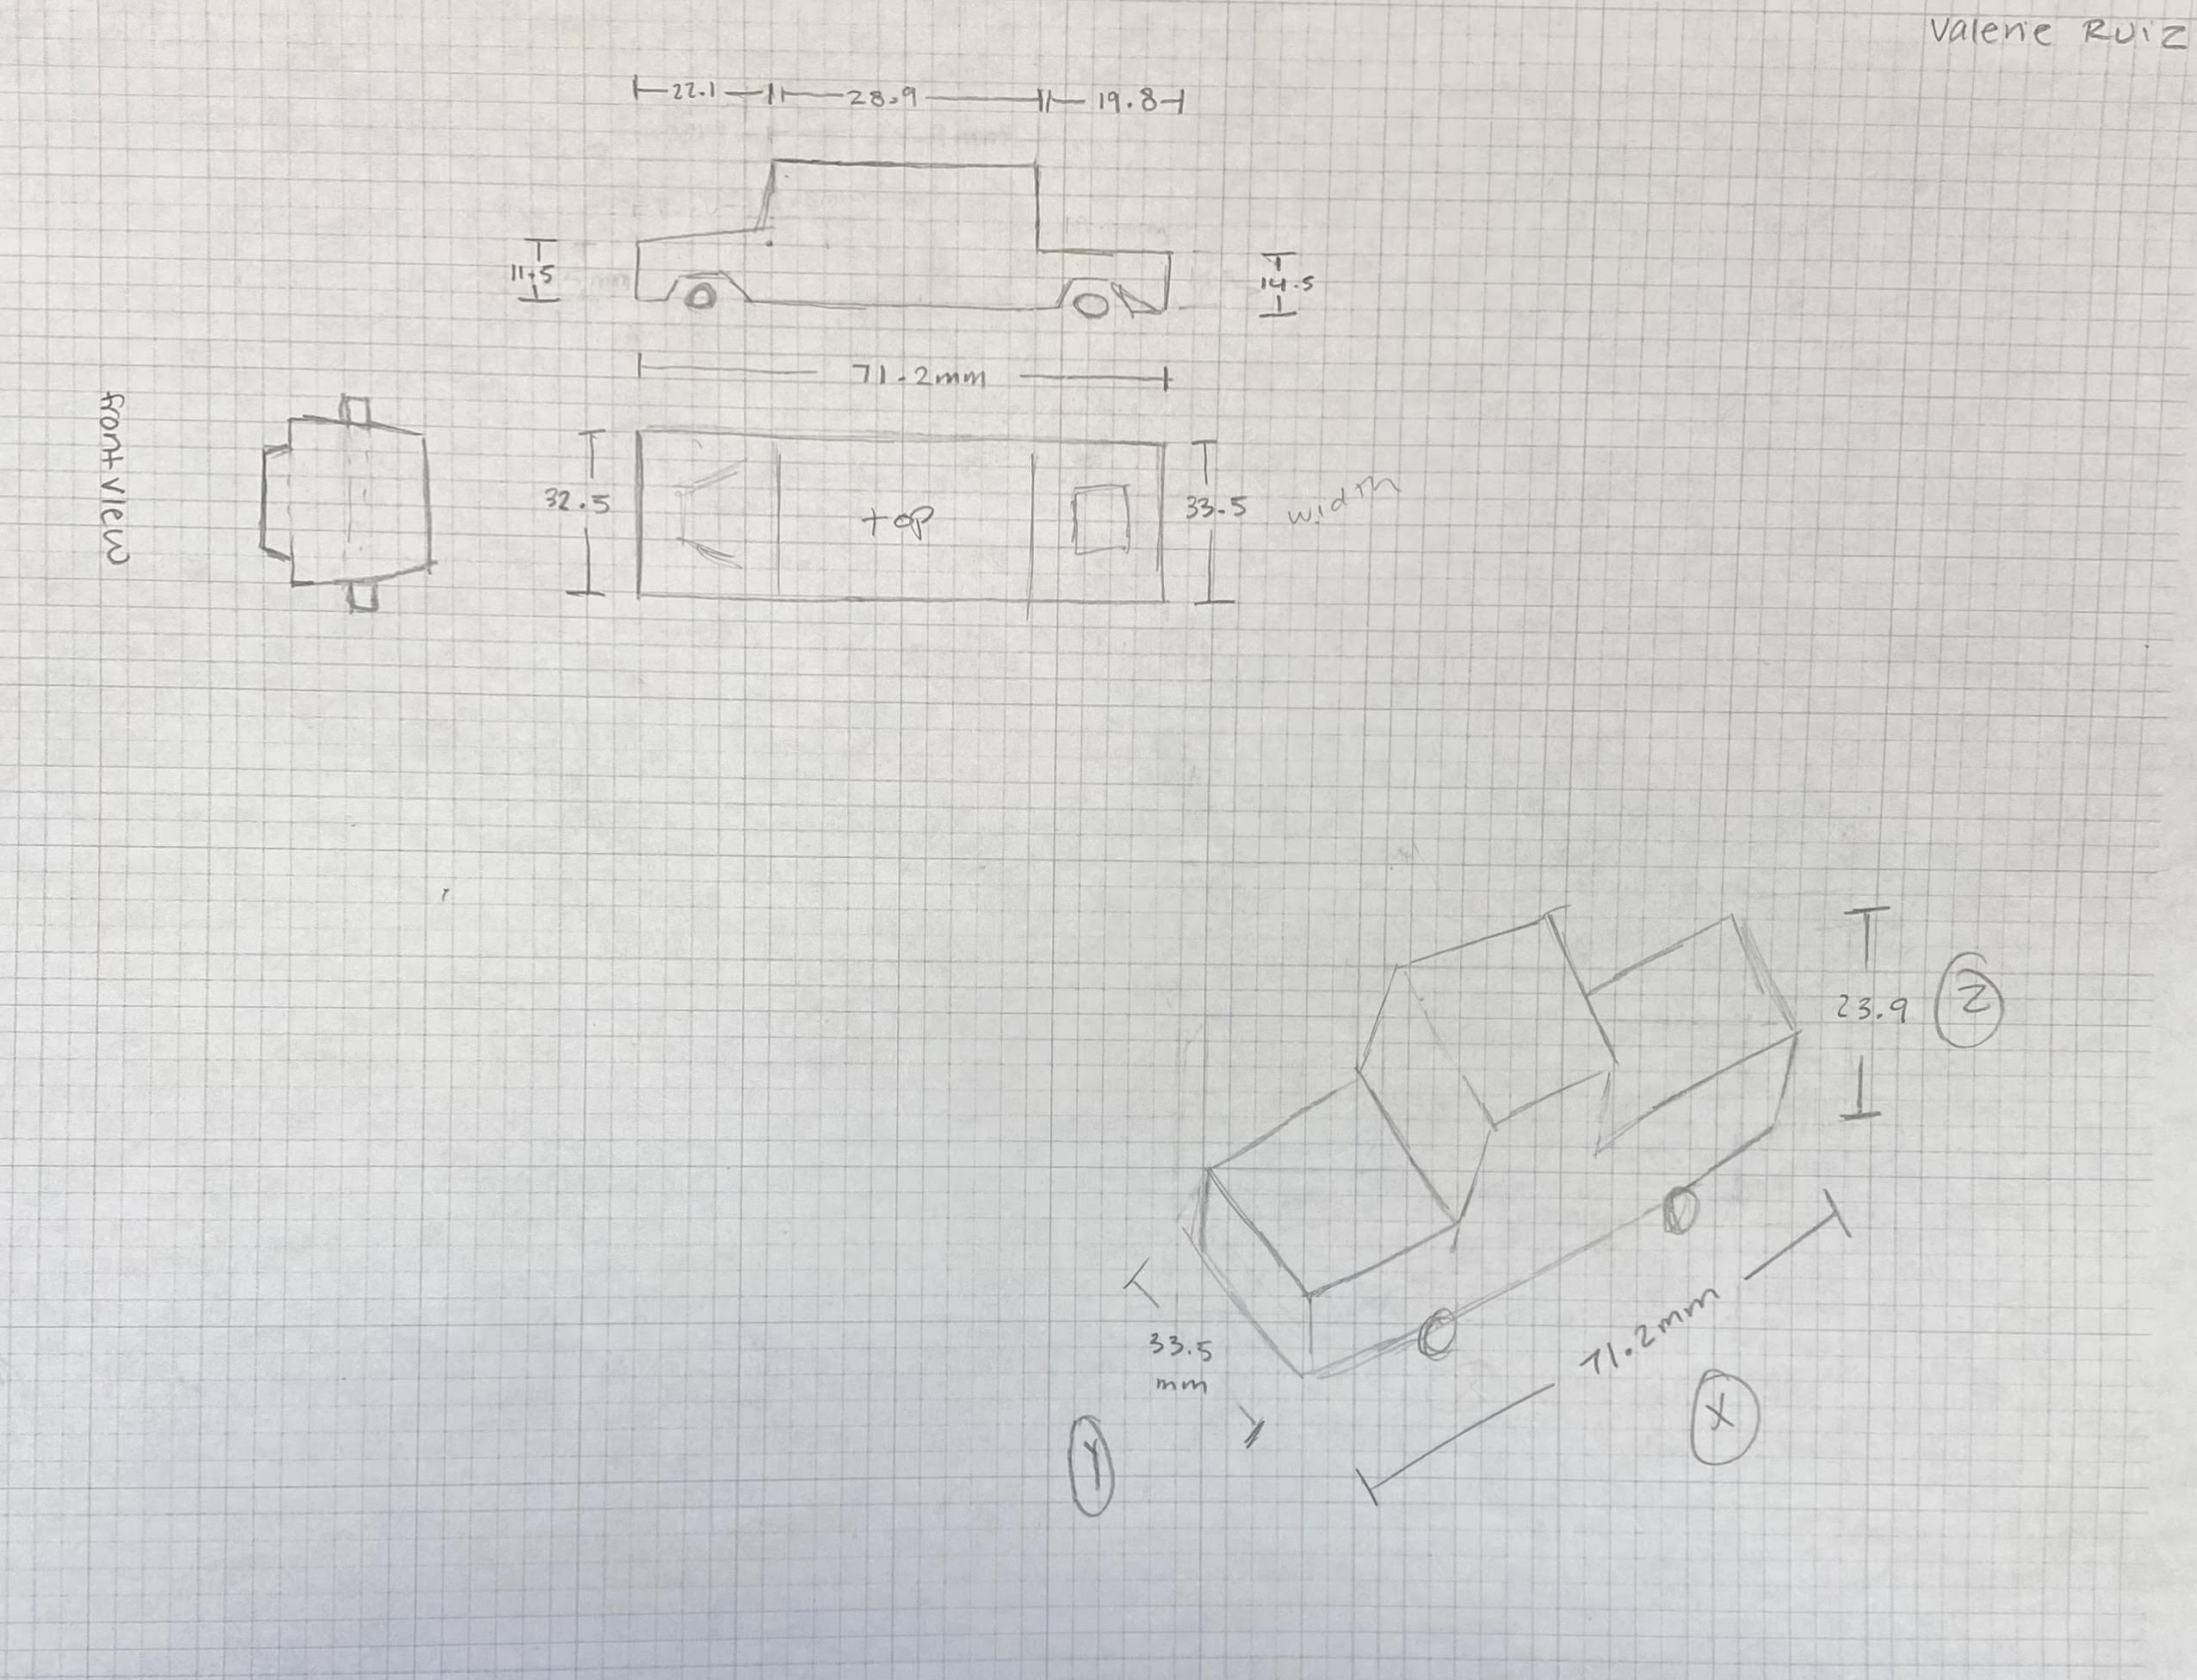 Valerie Ruiz
22.1 28.9 19.8
11.5
14.5
71.2mm
front view
32.5
top
33.5
width
23.9
Z
33.5
mm
71.2mm
X
Y